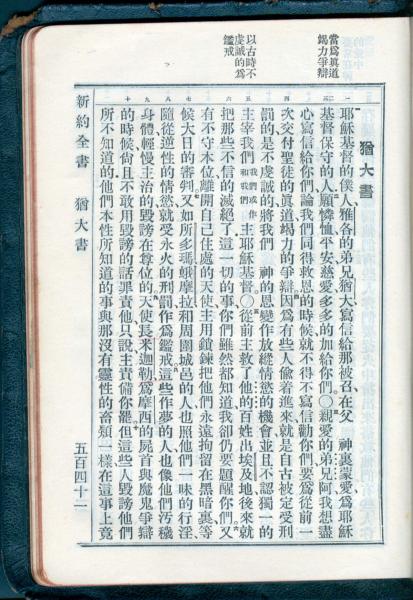 當爲眞道
竭力爭辯
以古時不
虔誠的爲
鑑戒
一 二三 四 五 六 七 八 九 十
猶大書
耶穌基督的僕人、雅各的弟兄猶大、寫信給那被召、在父 神裏蒙愛、爲耶穌
基督保守的人、願憐恤平安慈愛、多多的加給你們。○親愛的弟兄阿、我想盡
心寫信給你們、論我們同得救恩的時候、就不得不寫信勸你們、要爲從前一
次交付聖徒的眞道、竭力的爭辯、因爲有些人偷着進來、就是自古被定受刑
罰的、是不虔誠的、將我們 神的恩、變作放縱情慾的機會、並且不認獨一的
主宰我們我們或作和我們主耶穌基督。○從前主救了他的百姓出埃及地、後來就
把那些不信的滅絕了、這一切的事、你們雖然都知道、我卻仍要題醒你們。六又
有不守本位、離開自己住處的天使、主用鎖鍊把他們永遠拘留在黑暗裏、等
候大日的審判。又如所多瑪蛾摩拉和周圍城邑的人、也照他們一味的行淫、
隨從逆性的情慾、就受永火的刑罰、作爲鑑戒。這些作夢的人、也像他們污穢
身體、輕慢主治的、毀謗在尊位的。天使長米迦勒、爲摩西的屍首與魔鬼爭辯
的時候、尚且不敢用毀謗的話罪責他、只說、主責備你罷。但這些人毀謗他們
所不知道的。他們本性所知道的事、與那沒有靈性的畜類一樣、在這事上竟
新約全書 猶大書 五百四十二